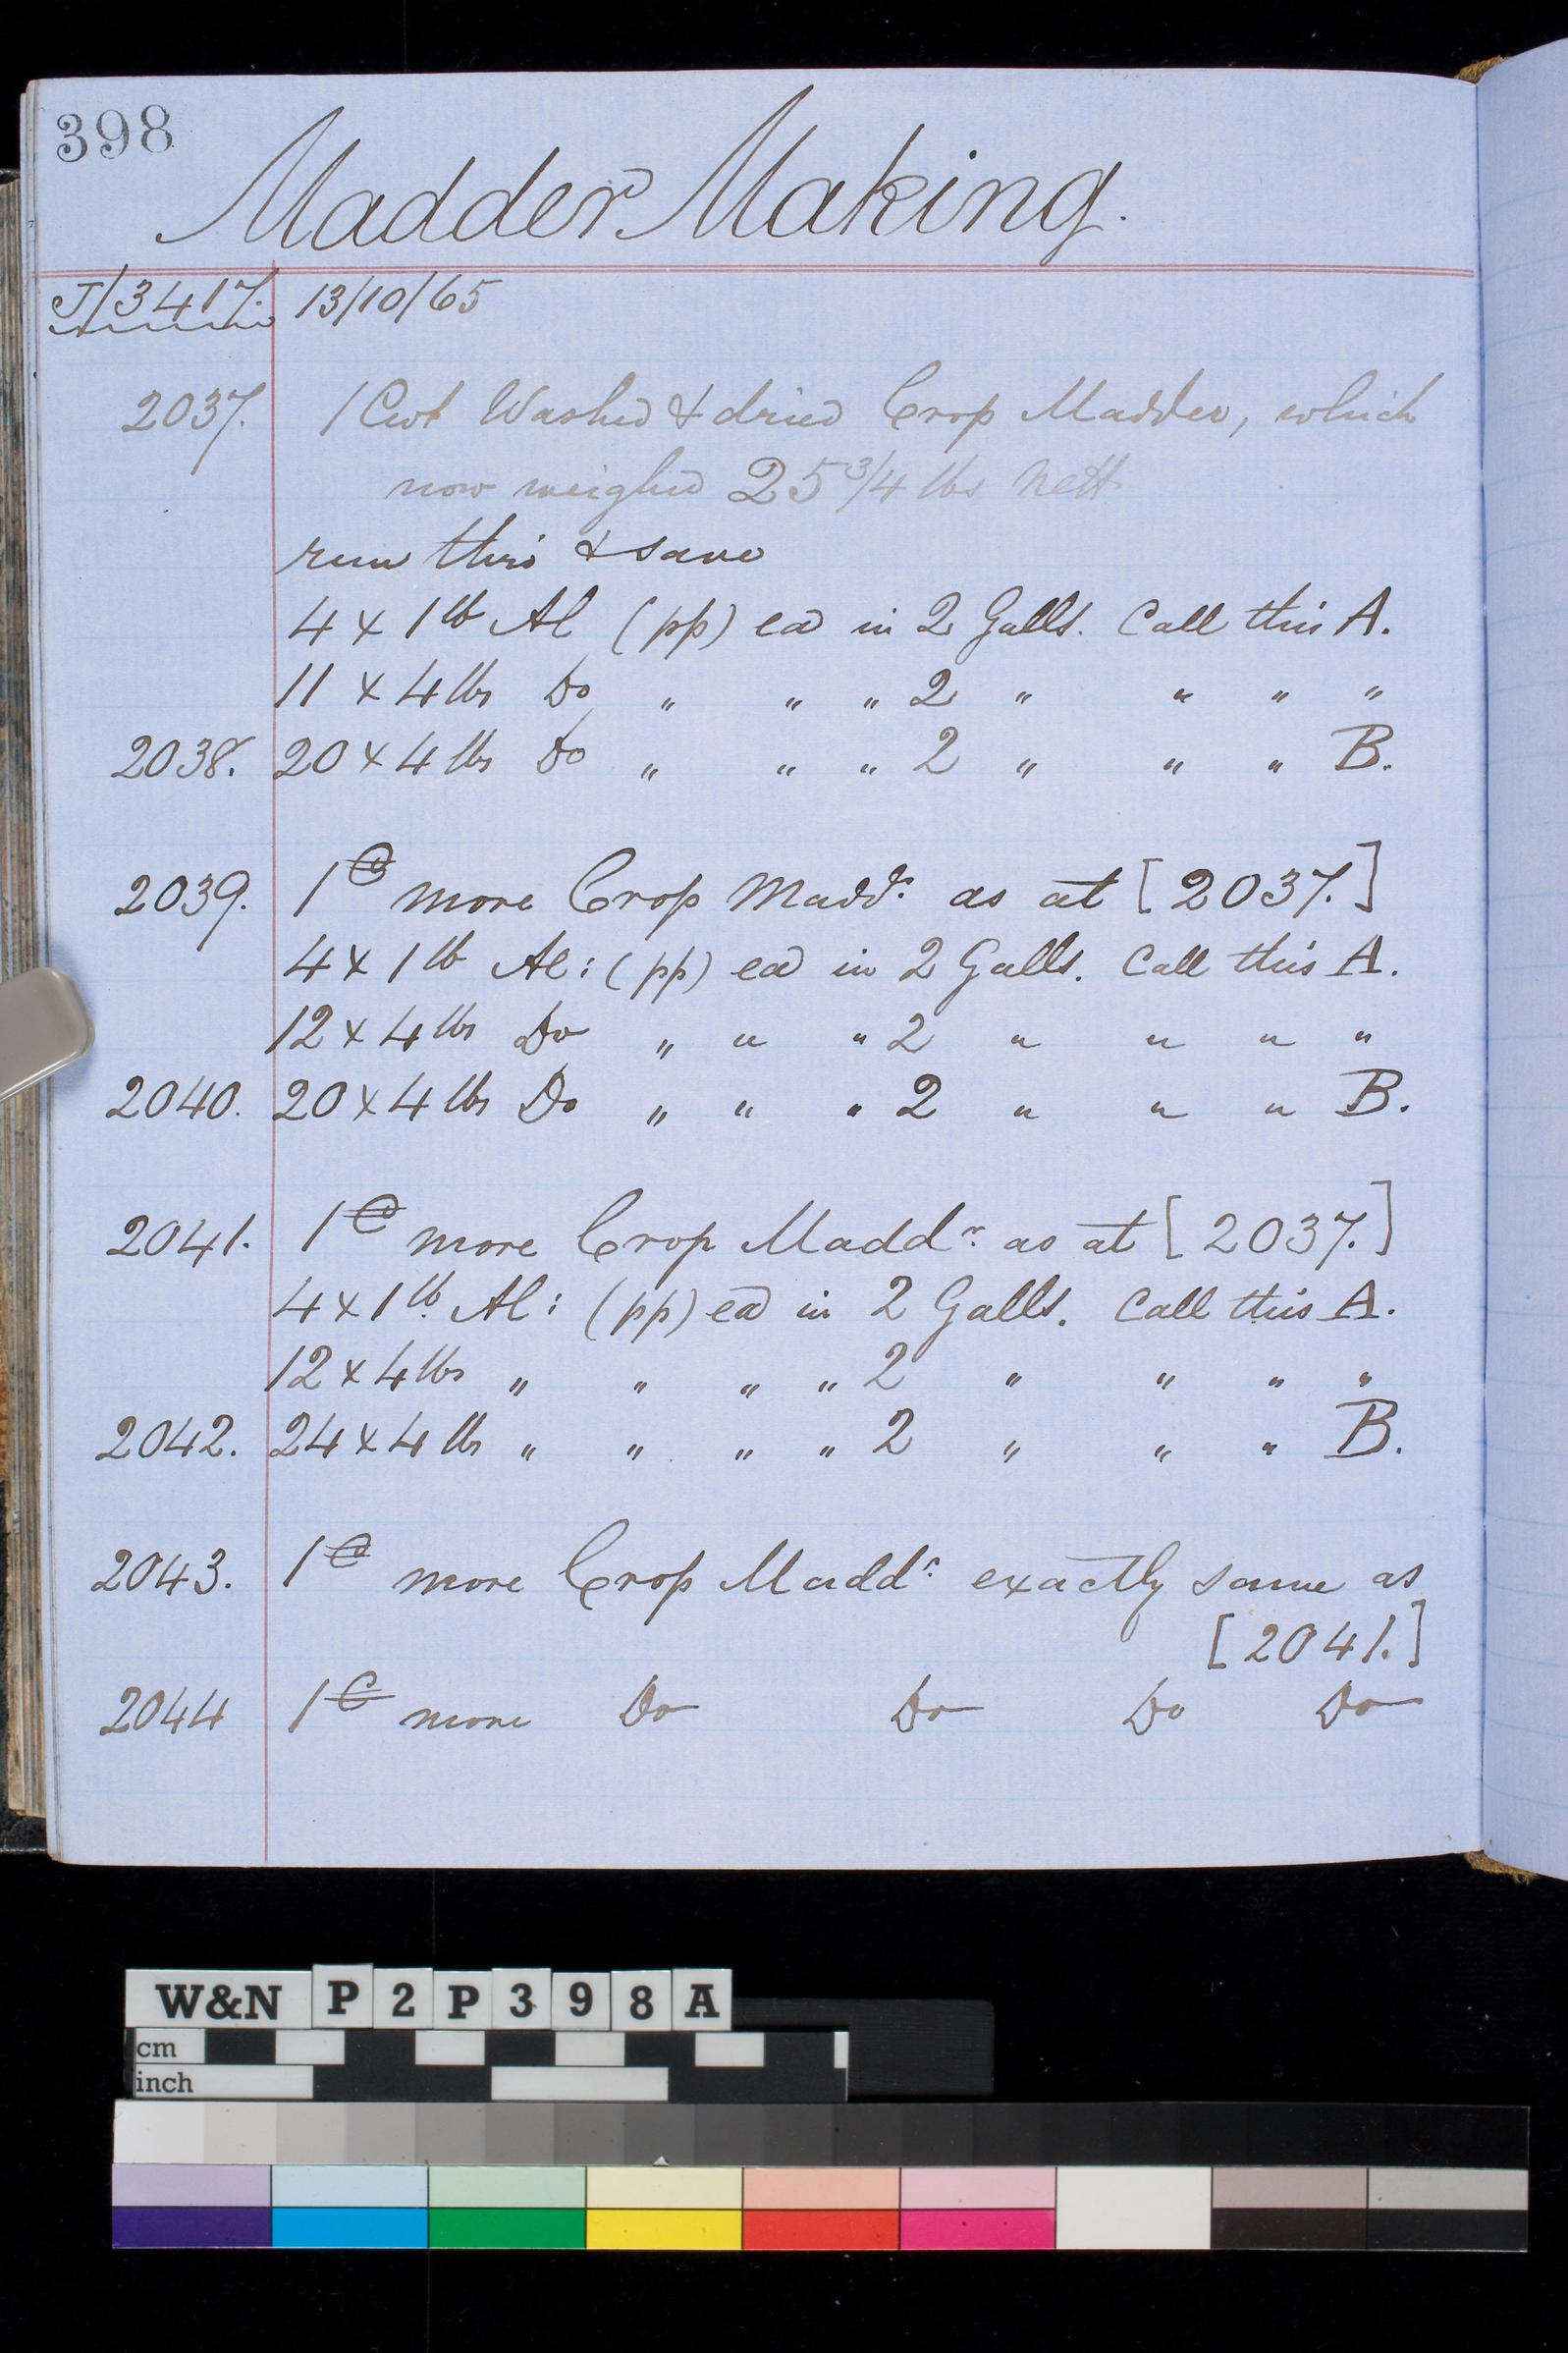 398
Madder Making.
J/3417. 13/10/65
2037. 1 Cwt Washed & dried Crop Madder, which
now weighed 25 3/4 lbs nett
run this & save
4 x 1 lb Al (pp) ea in 2 Galls. Call this A.
11 x 4 lbs Do " " " 2 " " " "
2038. 20 x 4 lbs Do " " " 2 " " " B.
2039. 1 C more Crop Maddr. as at [2037.]
4 x 1 lb Al: (pp) ea in 2 Galls. Call this A.
12 x 4 lbs Do " " " 2 " " " "
2040. 20 x 4 lbs Do " " " 2 " " " B.
2041. 1 C more Crop Maddr. as at [2037.]
4 x 1 lb. Al: (pp) ea in 2 Galls. Call this A.
12 x 4 lbs " " " " 2 " " " "
2042. 24 x 4 lbs " " " " 2 " " " B.
2043. 1 C more Crop Maddr. exactly same as
[2041.]
2044 1 C more Do Do Do Do
W&N P2P398A
cm
inch